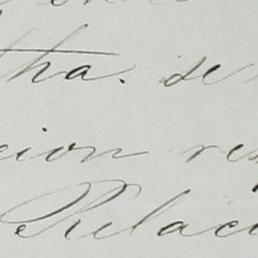 tha. se
cion res
Relaci